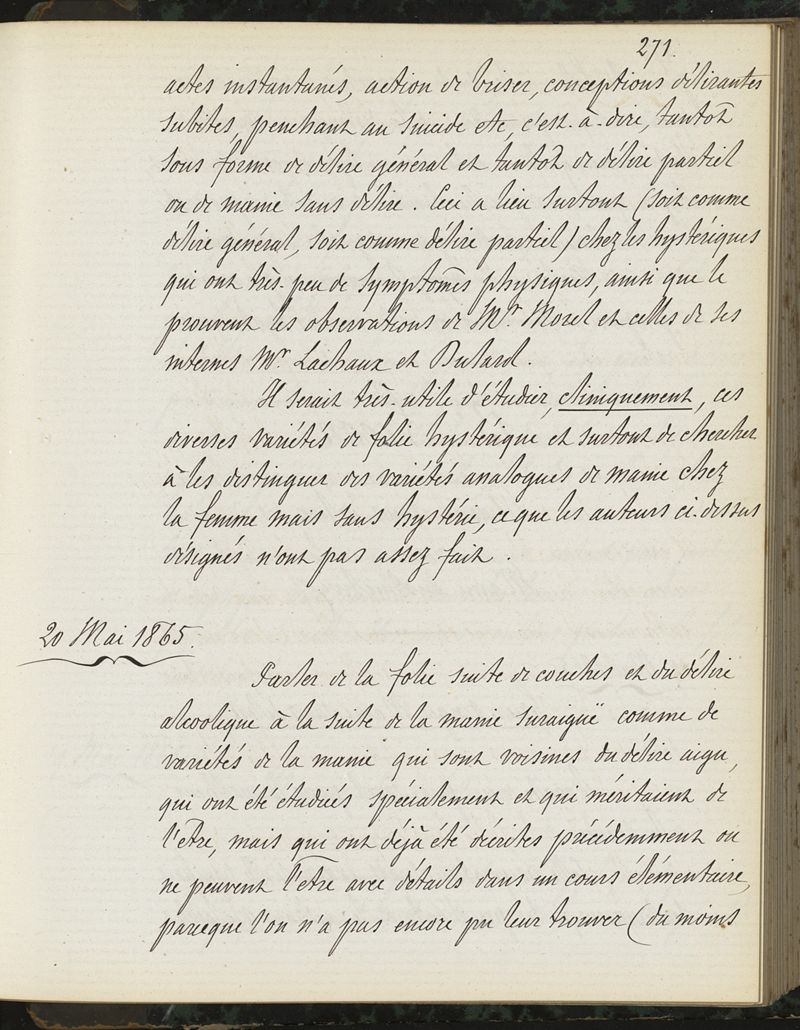 271.
actes instantanés, action de briser, conceptions délirantes
subites, penchant au suicide etc, c'est-à-dire, tantôt
sous forme de délire général et tantôt de délire partiel
ou de manie sans délire. Ceci a lieu surtout (soit comme
délire général, soit comme délire partiel) chez les hystériques
qui ont très-peu de symptômes physiques, ainsi que le
prouvent les observations de Mr. Morel et celles de ses
internes Mrs Lachaux et Bulard.
Il serait très-utile d'étudier, cliniquement, ces
diverses variétés de folie hystérique et surtout de chercher
à les distinguer des variétés analogues de manie chez
la femme mais sans hystérie, ce que les auteurs ci-dessus
désignés n'ont pas assez fait.
20 Mai 1865.
Parler de la folie suite de couches et du délire
alcoolique à la suite de la manie suraiguë comme de
variétés de la manie qui sont voisines du délire aigu,
qui ont été étudiées spécialement et qui méritaient de
l'être, mais qui ont déjà été décrites précédemment ou
ne peuvent l'être avec détails dans un cours élémentaire,
parceque l'on n'a pas encore pu leur trouver (du moins